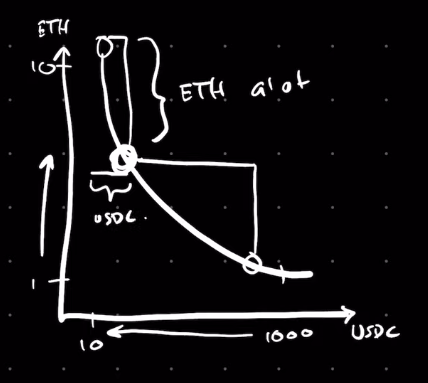 ETH
10
ETH a lot
USDC.
1
10
1000
USDC